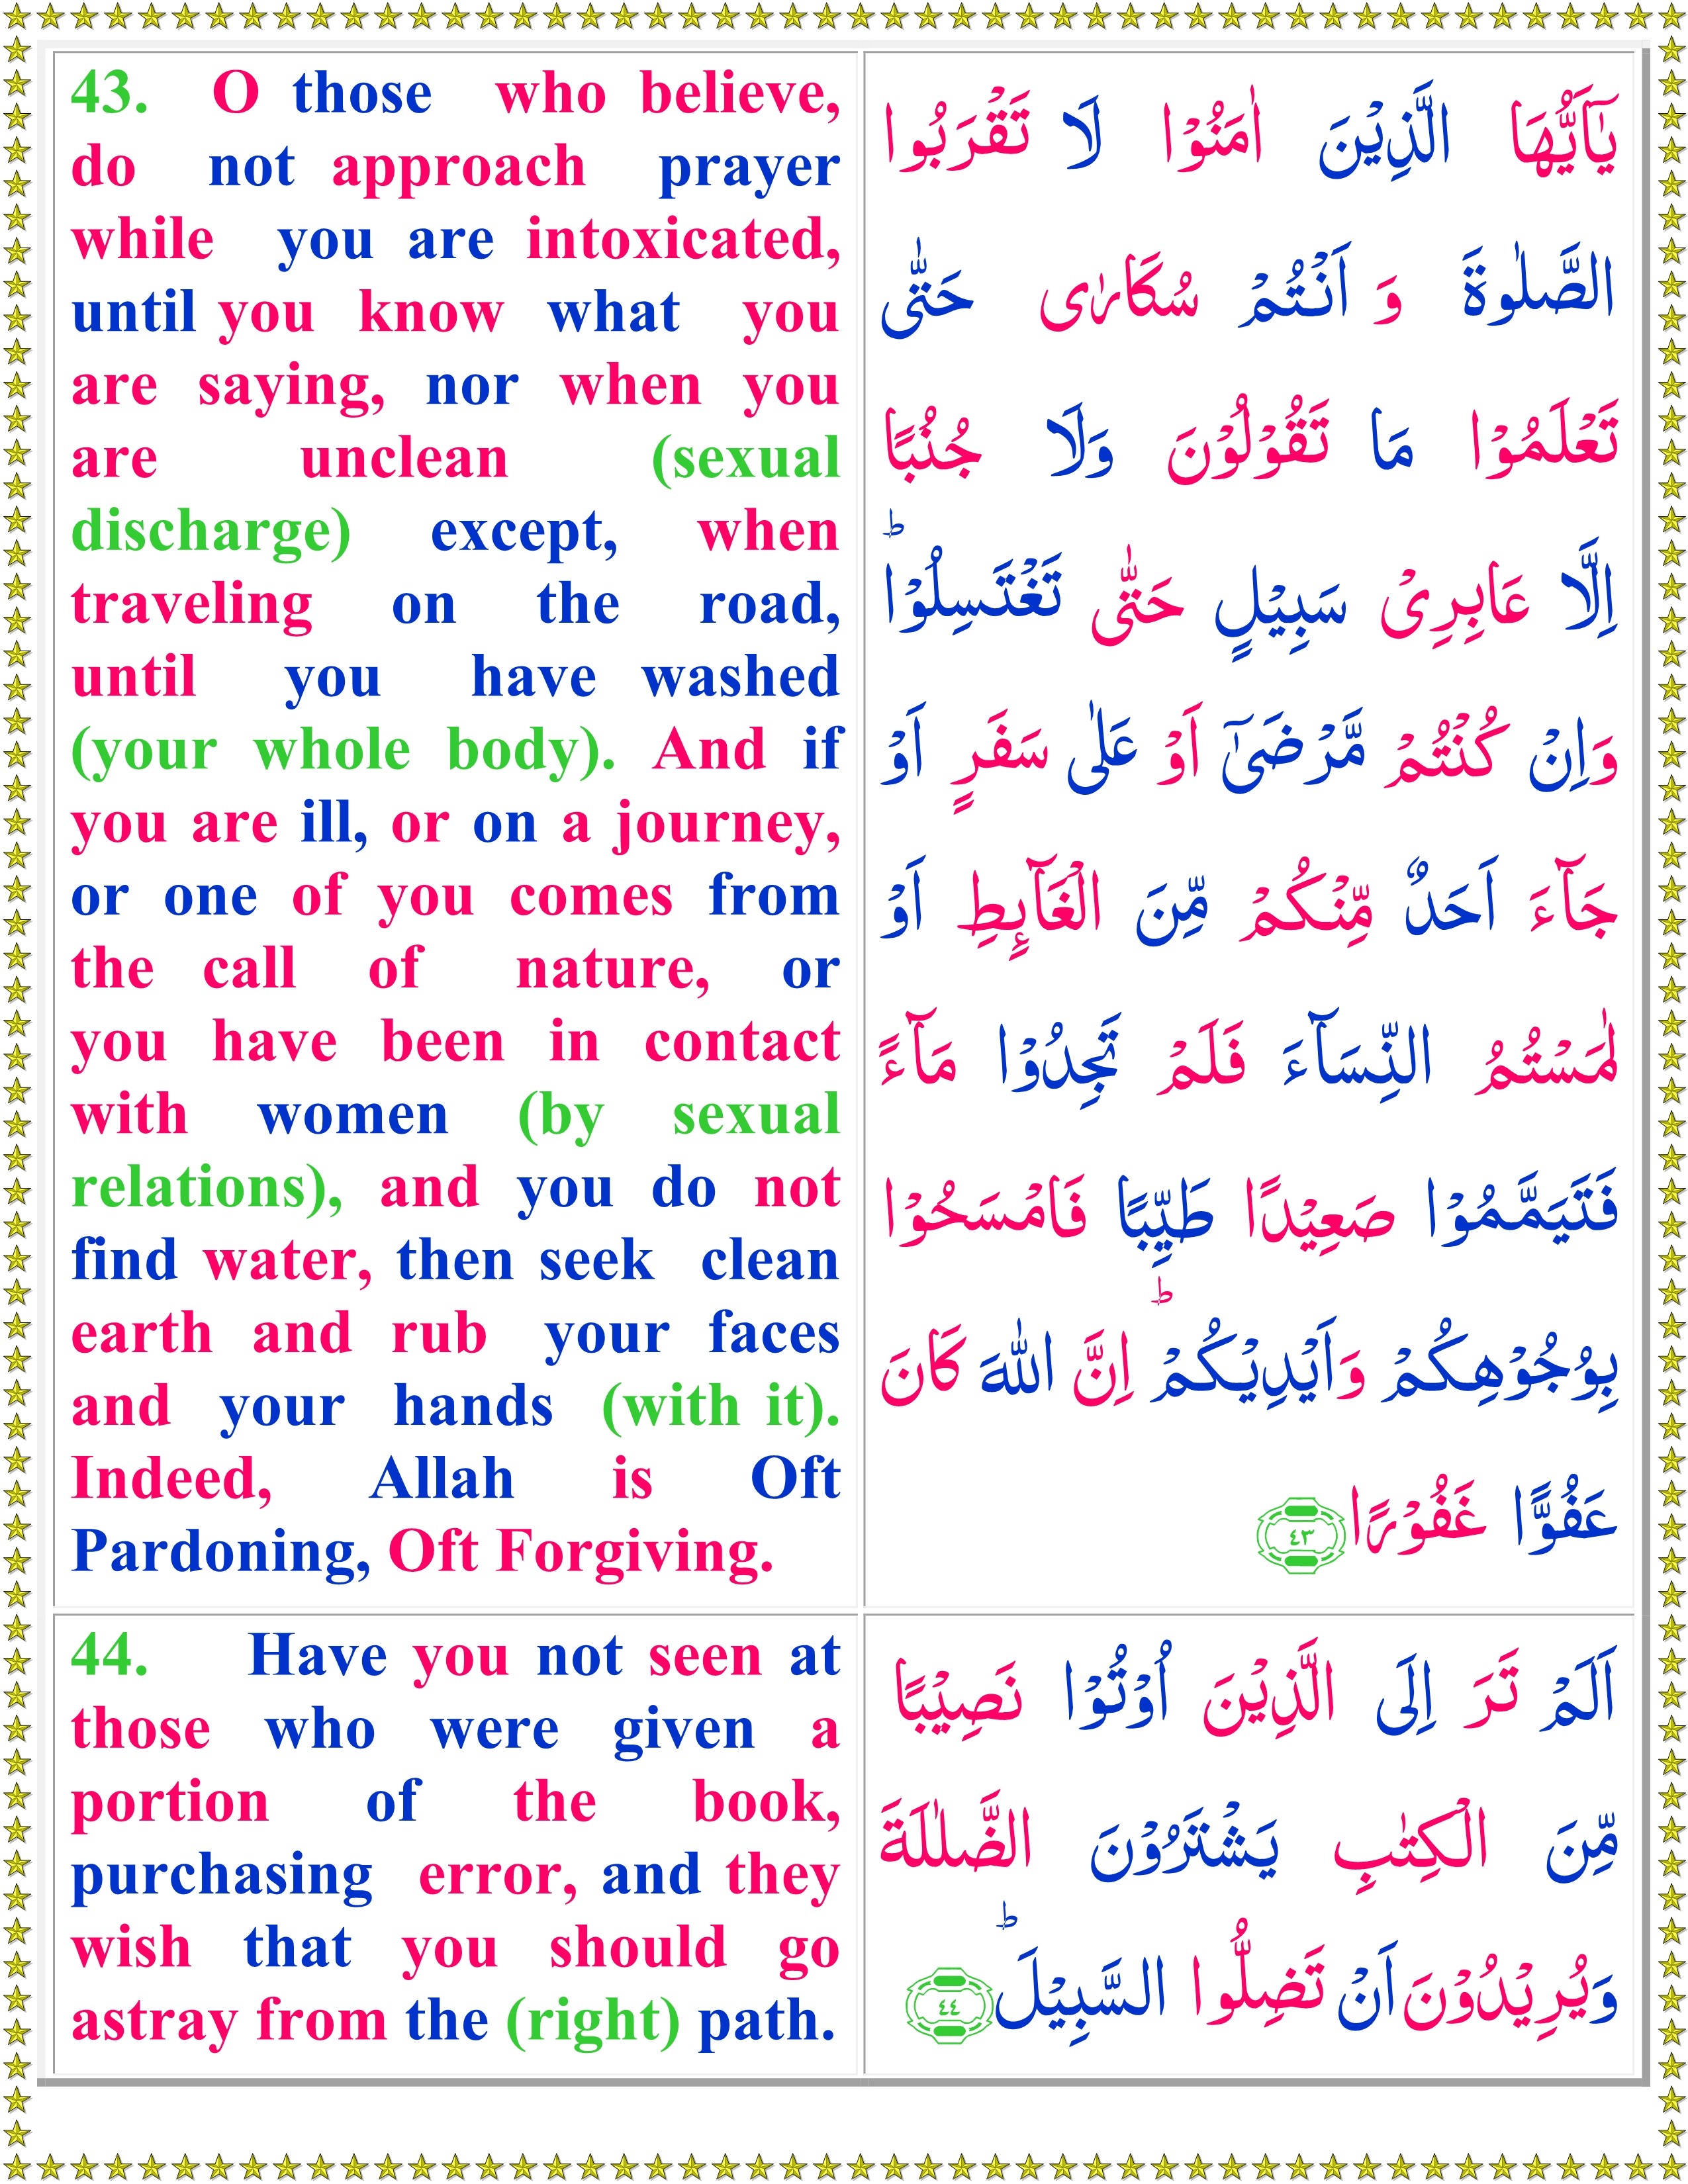 43. O those who believe,
do not approach prayer
while you are intoxicated,
until you know what you
are saying, nor when you
are unclean (sexual
discharge) except, when
traveling on the road,
until you have washed
(your whole body). And if
you are ill, or on a journey,
or one of you comes from
the call of nature, or
you have been in contact
with women (by sexual
relations), and you do not
find water, then seek clean
earth and rub your faces
and your hands (with it).
Indeed, Allah is Oft
Pardoning, Oft Forgiving.
يٰۤاَيُّهَا الَّذِيْنَ اٰمَنُوْا لَا تَقْرَبُوا
الصَّلٰوةَ وَ اَنْتُمْ سُكَارٰى حَتّٰى
تَعْلَمُوْا مَا تَقُوْلُوْنَ وَلَا جُنُبًا
اِلَّا عَابِرِىْ سَبِيْلٍ حَتّٰى تَغْتَسِلُوْا ؕ
وَاِنْ كُنْتُمْ مَّرْضَىٰۤ اَوْ عَلٰى سَفَرٍ اَوْ
جَآءَ اَحَدٌ مِّنْكُمْ مِّنَ الْغَآٮِٕطِ اَوْ
لٰمَسْتُمُ النِّسَآءَ فَلَمْ تَجِدُوْا مَآءً
فَتَيَمَّمُوْا صَعِيْدًا طَيِّبًا فَامْسَحُوْا
بِوُجُوْهِكُمْ وَاَيْدِيْكُمْ ؕ اِنَّ اللّٰهَ كَانَ
عَفُوًّا غَفُوْرًا ٤٣
44. Have you not seen at
those who were given a
portion of the book,
purchasing error, and they
wish that you should go
astray from the (right) path.
اَلَمْ تَرَ اِلَى الَّذِيْنَ اُوْتُوْا نَصِيْبًا
مِّنَ الْكِتٰبِ يَشْتَرُوْنَ الضَّلٰلَةَ
وَيُرِيْدُوْنَ اَنْ تَضِلُّوا السَّبِيْلَ ؕ ٤٤